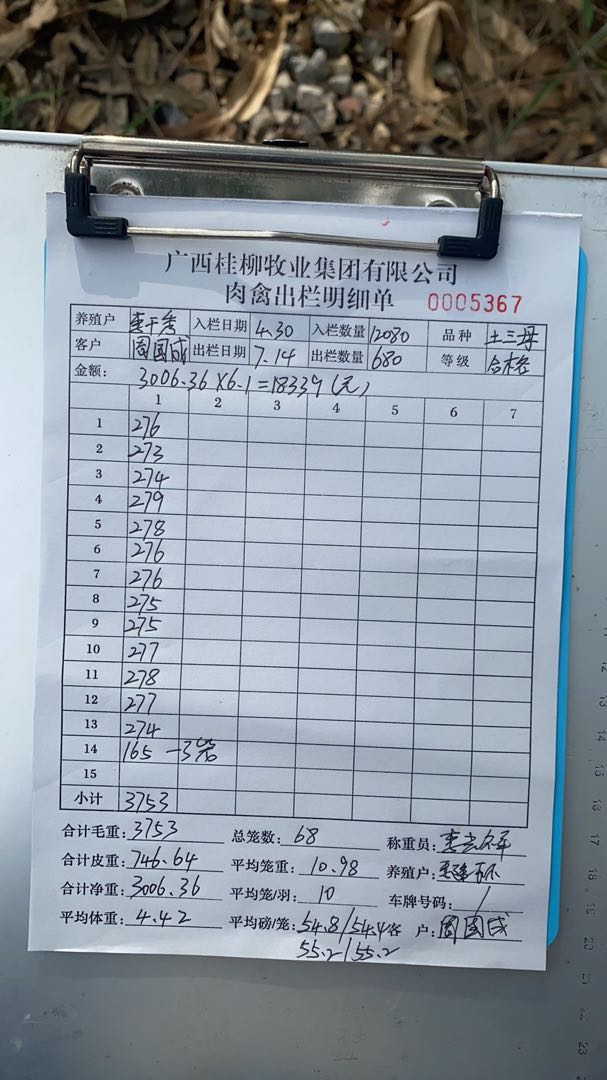 广西桂柳牧业集团有限公司
肉禽出栏明细单 0005367
养殖户 入栏日期 4.30 入栏数量 12080 品种 土三母
客户 周国成 出栏日期 7.14 出栏数量 680 等级 合格
金额: 3006.36×6.1=18339(元)
1 2 3 4 5 6 7
1 276
2 273
3 274
4 279
5 278
6 276
7 276
8 275
9 275
10 277
11 278
12 277
13 274
14 165 一3笼
15
小计 3753
合计毛重: 3753 总笼数: 68 称重员:
合计皮重: 746.64 平均笼重: 10.98 养殖户:
合计净重: 3006.36 平均笼/羽: 10 车牌号码: /
平均体重: 4.42 平均磅/笼: 54.8/54.4 客户: 周国成
55.2/55.2
12
13
14
15
16
17
18
19
20
21
22
23